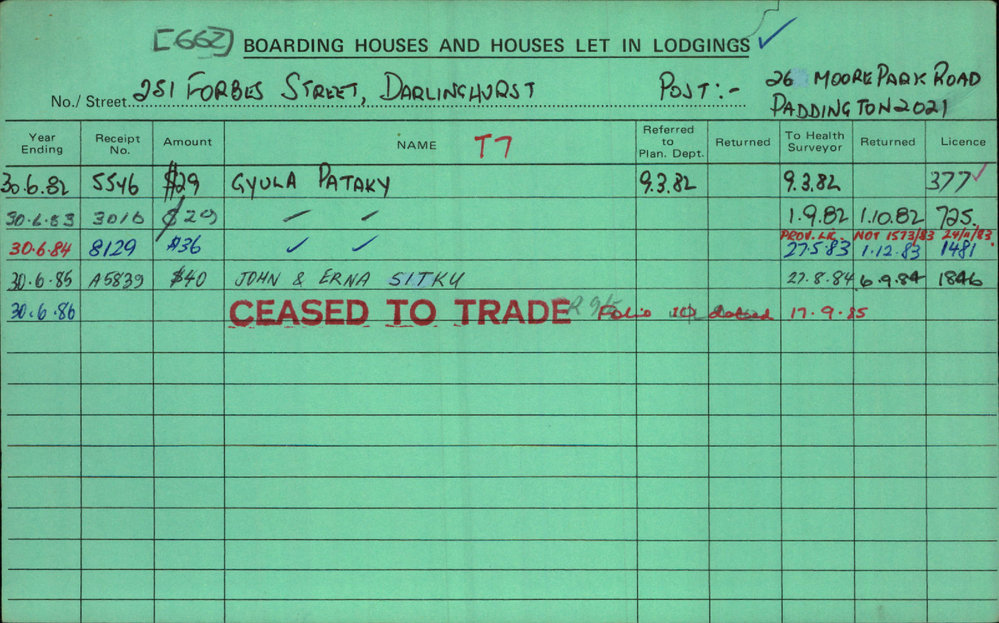 [662] BOARDING HOUSES AND HOUSES LET IN LODGINGS ✓
No./Street 251 FORBES STREET, DARLINGHURST POST:- 26 MOORE PARK ROAD
PADDINGTON 2021
Year Ending Receipt No. Amount NAME T7 Referred to Plan. Dept. Returned To Health Surveyor Returned Licence
30.6.82 5546 $29 GYULA PATAKY 9.3.82 9.3.82 377 ✓
30.6.83 3016 $29 〃 〃 1.9.82 1.10.82 725.
PROV. LIC. NOT 1573/83 24/11/83
30.6.84 8129 $36 ✓ ✓ 27.5.83 1.12.83 1481
30.6.85 A5839 $40 JOHN & ERNA SITKU 27.8.84 6.9.84 1846
30.6.86 CEASED TO TRADE Folio dated 17.9.85